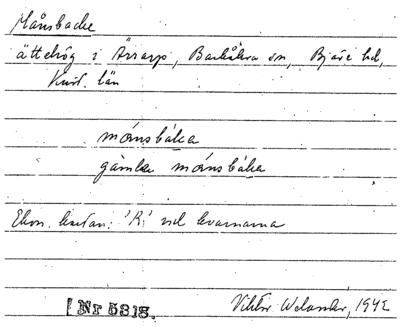 Månsbacke
ättehög i Ärrarp, Barkåkra sn, Bjäre hd,
Krist. län
månsbáka
gámla månsbáka
Ekon. kartan: 'R' vid kvarnarna
Nr 5318.
Viktor Welander, 1942